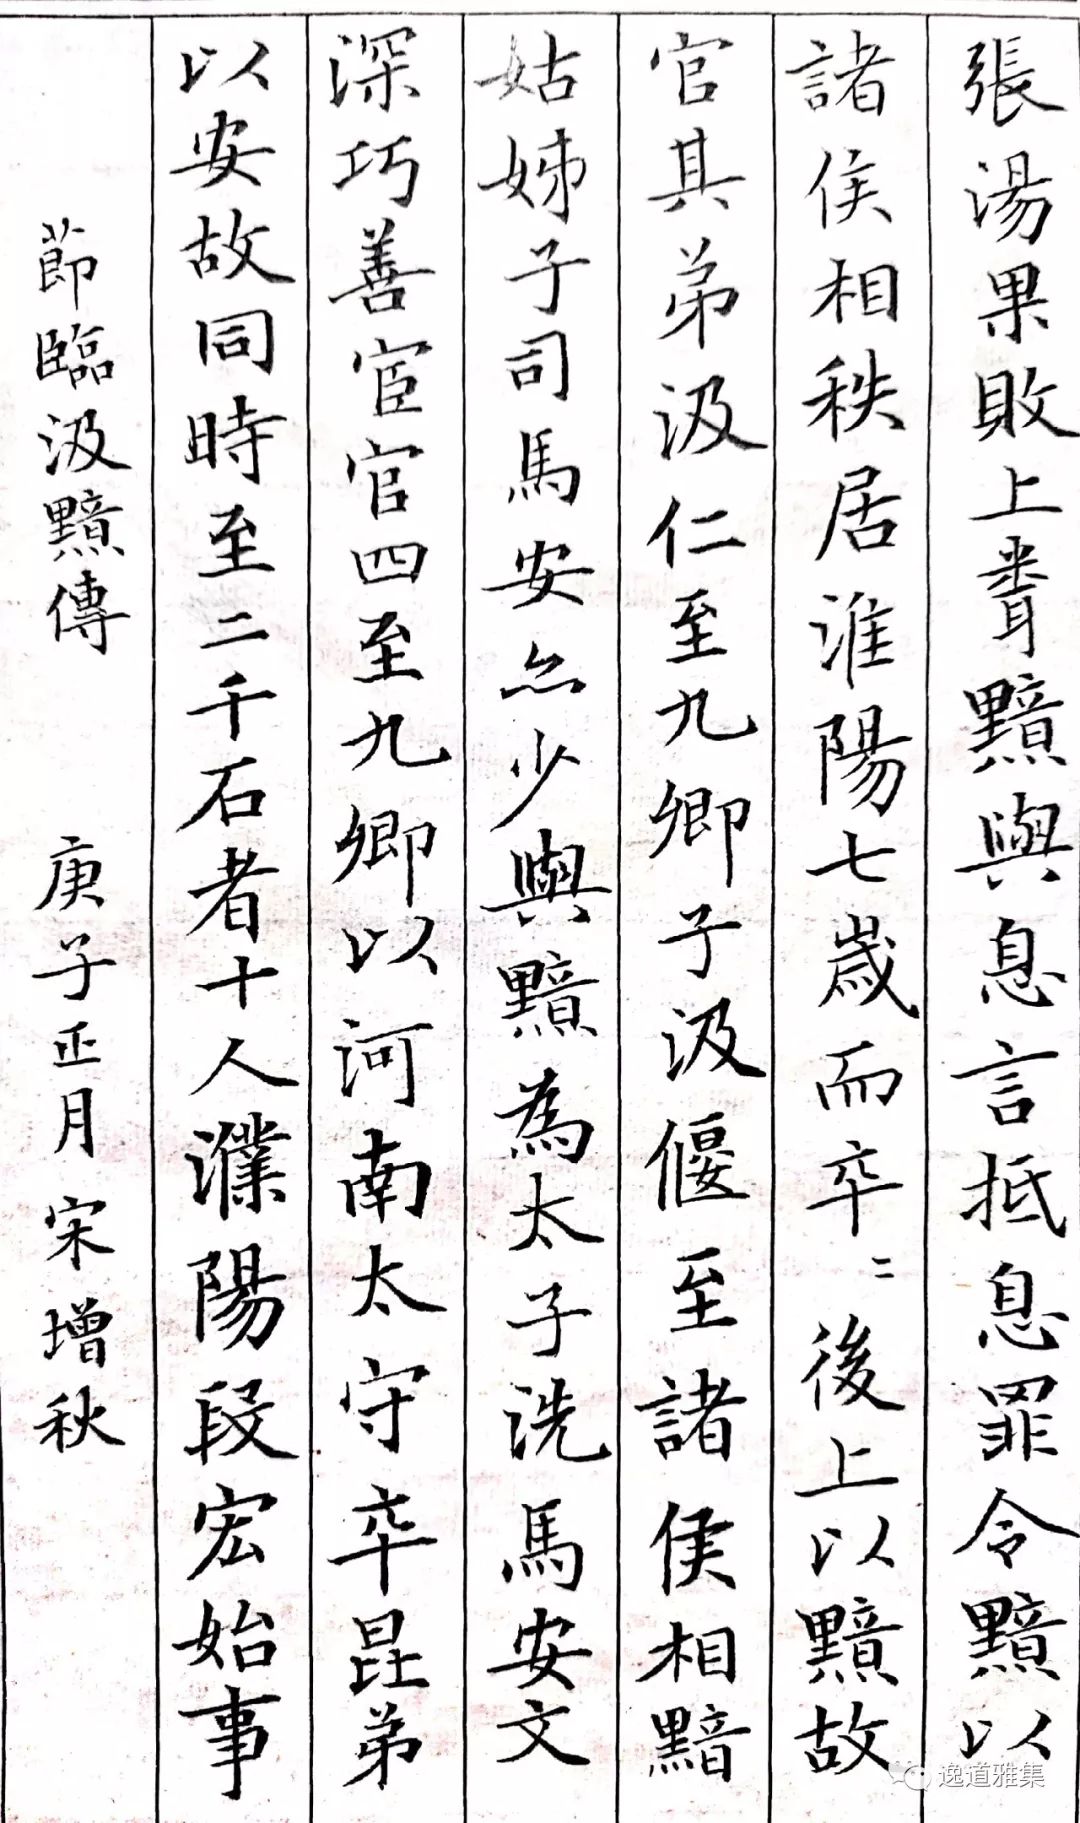 張湯果敗上聞黯與息言抵息罪令黯以
諸侯相秩居淮陽七歲而卒〻後上以黯故
官其弟汲仁至九卿子汲偃至諸侯相黯
姑姊子司馬安亦少與黯為太子洗馬安文
深巧善宦官四至九卿以河南太守卒昆弟
以安故同時至二千石者十人濮陽段宏始事
節臨汲黯傳 庚子正月 宋增秋
逸道雅集